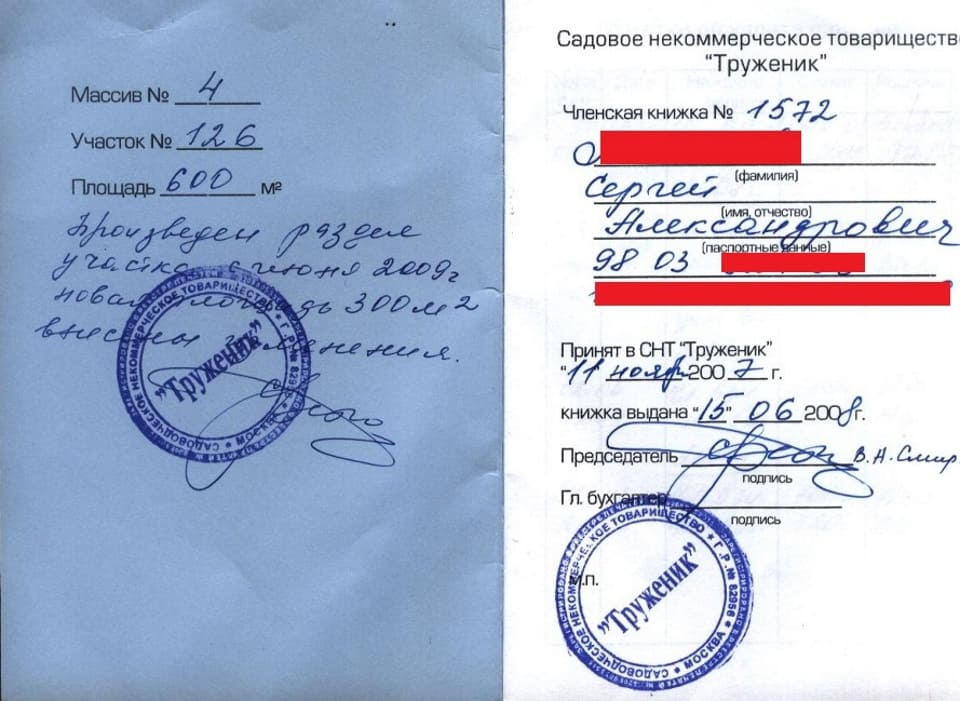 Массив № 4
Участок № 126
Площадь 600 м²
Произведен раздел
участка с июня 2009г
новая площадь 300 м2
внесены изменения.
САДОВОДЧЕСКОЕ НЕКОММЕРЧЕСКОЕ ТОВАРИЩЕСТВО * Г.Р.№ 82956 * МОСКВА *
"Труженик"
Садовое некоммерческое товарищество
"Труженик"
Членская книжка № 1572
(фамилия)
Сергей
(имя, отчество)
Александрович
(паспортные данные)
98 03
Принят в СНТ "Труженик"
"11 ноября 2007 г.
книжка выдана "15" 06 2008г.
Председатель В.А.Смир.
подпись
Гл. бухгалтер
подпись
М.П.
САДОВОДЧЕСКОЕ НЕКОММЕРЧЕСКОЕ ТОВАРИЩЕСТВО * Г.Р.№ 82956 * МОСКВА *
"Труженик"